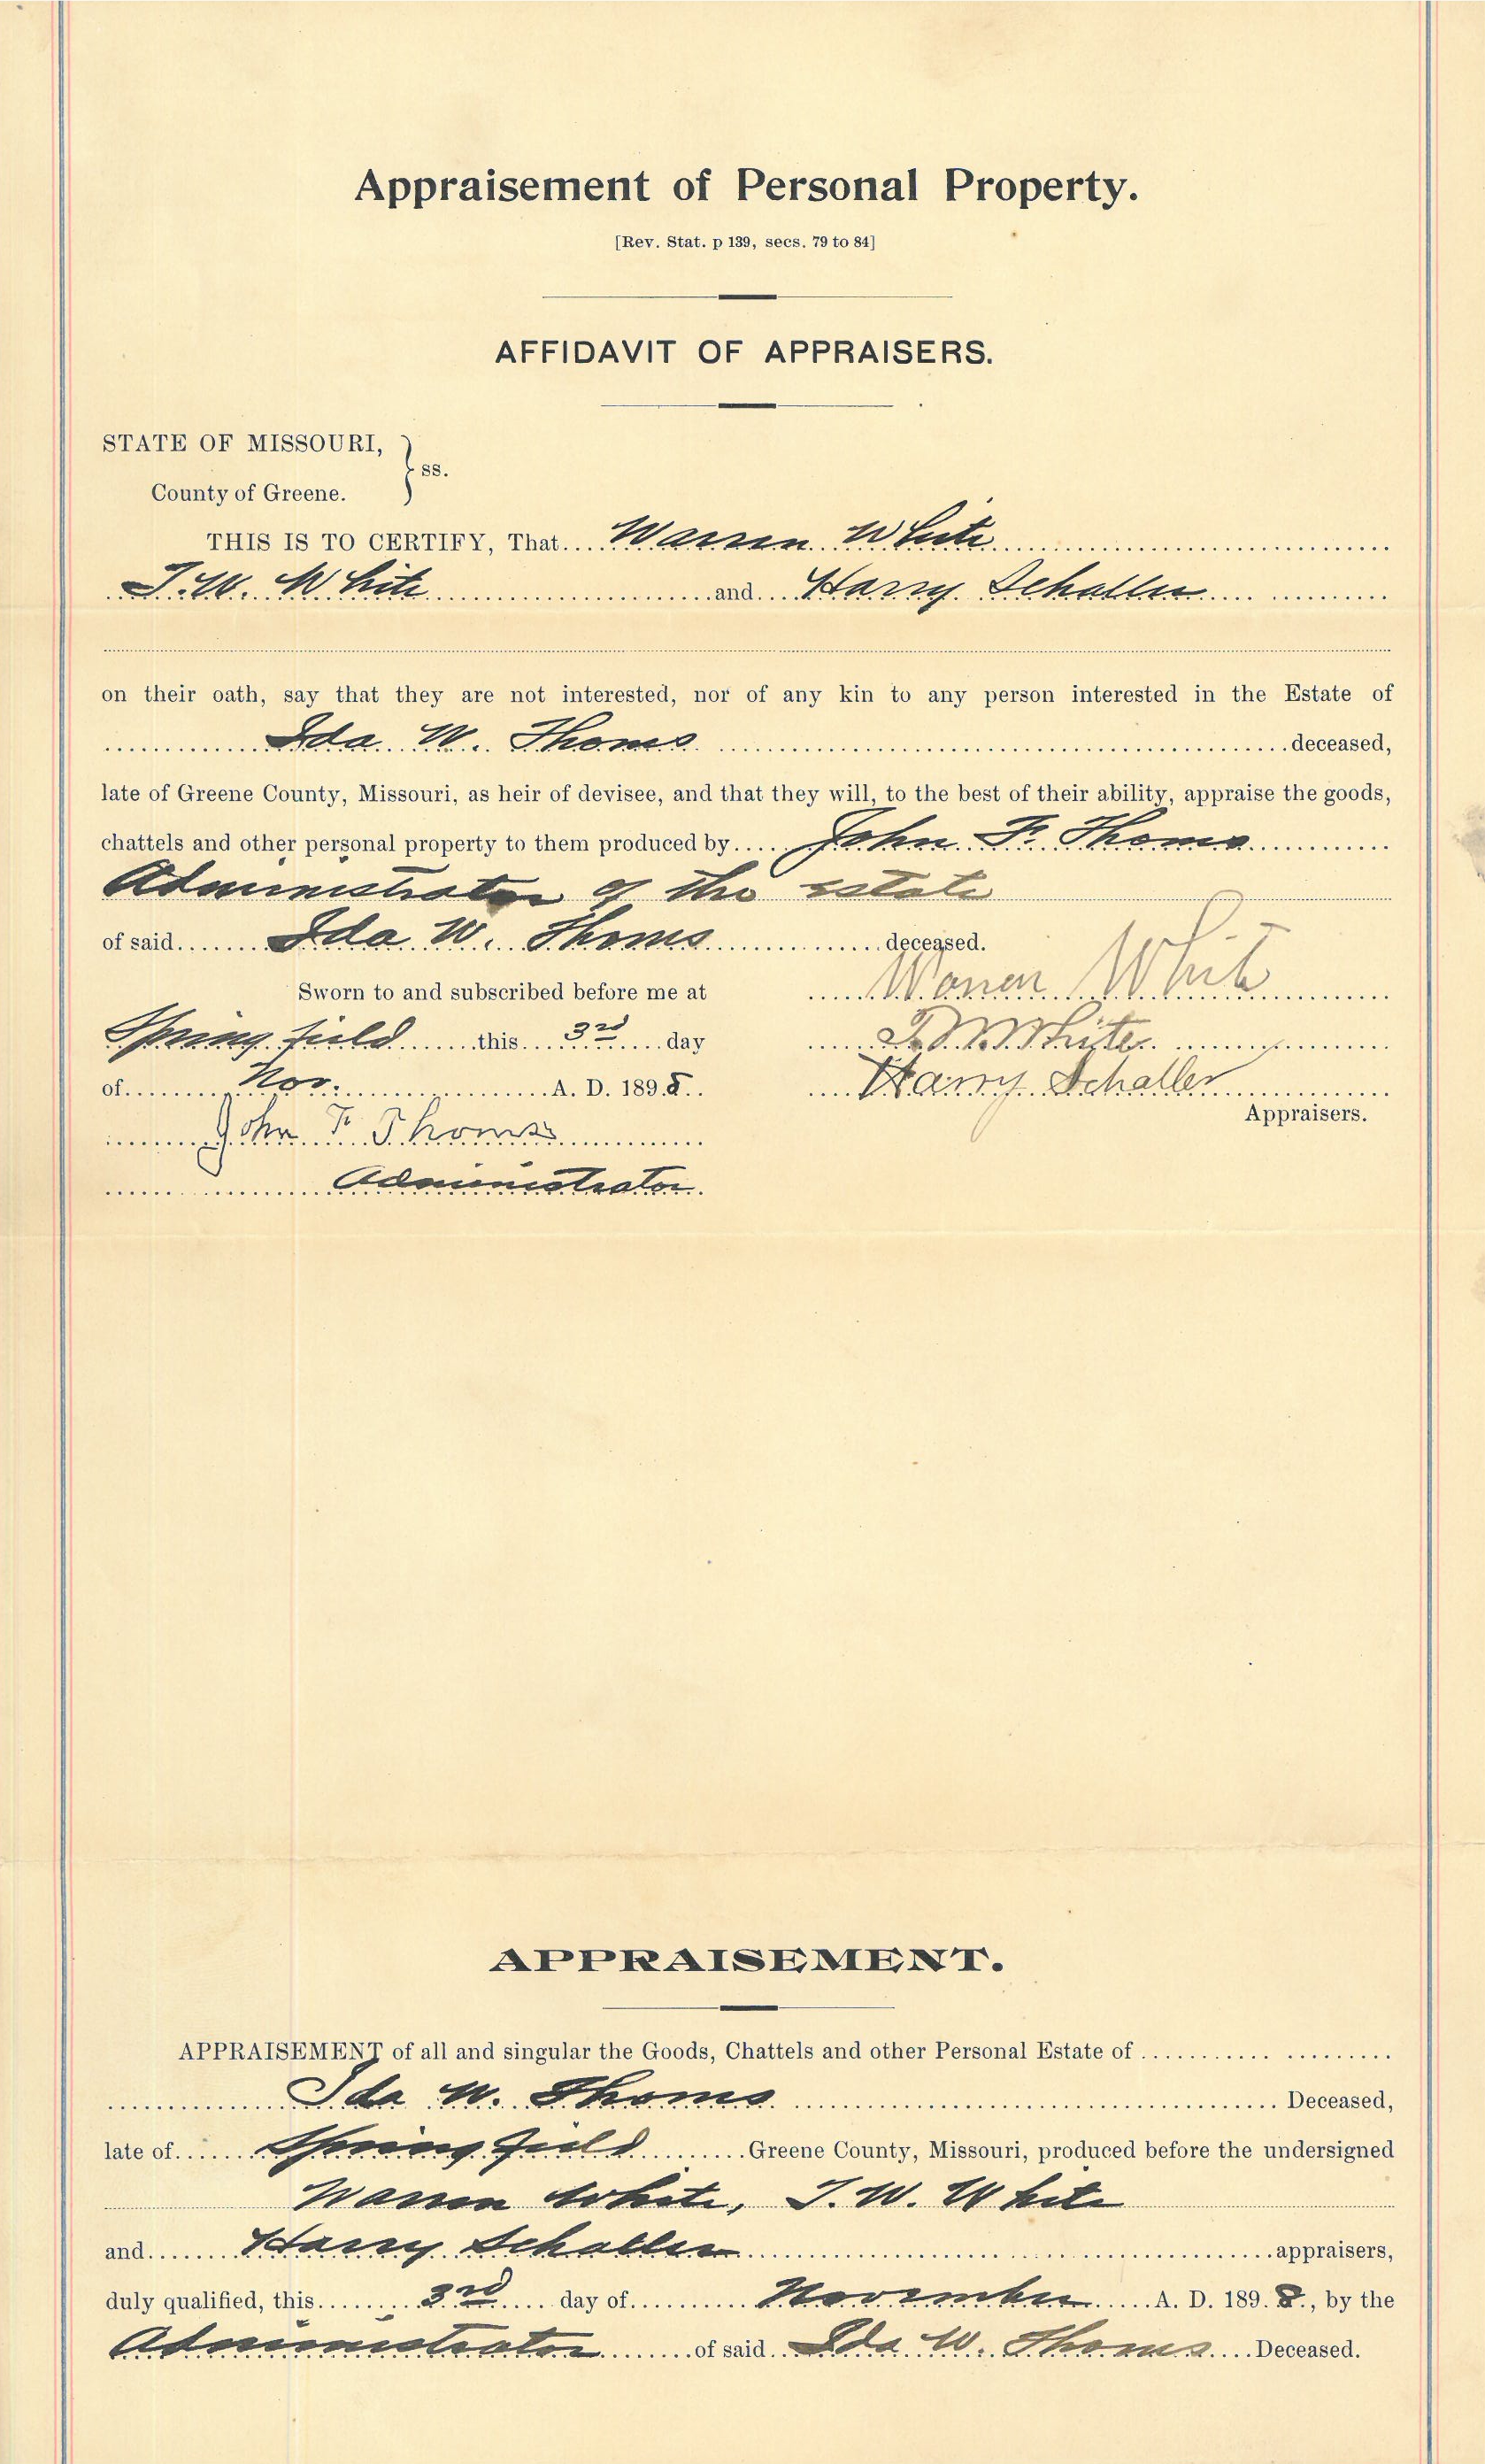 Appraisement of Personal Property.
[Rev. Stat. p 139, secs. 79 to 84]
AFFIDAVIT OF APPRAISERS.
STATE OF MISSOURI,
ss.
County of Greene.
THIS IS TO CERTIFY, That Warren White
T. W. White and Harry Schaller
on their oath, say that they are not interested, nor of any kin to any person interested in the Estate of
Ida W. Thoms deceased,
late of Greene County, Missouri, as heir of devisee, and that they will, to the best of their ability, appraise the goods,
chattels and other personal property to them produced by John F. Thoms
Administrator of the estate
of said Ida W. Thoms deceased.
Sworn to and subscribed before me at Warren White
Springfield this 3rd day T. W. White
of Nov. A. D. 1898 Harry Schaller
Appraisers.
John F Thoms
Administrator.
APPRAISEMENT.
APPRAISEMENT of all and singular the Goods, Chattels and other Personal Estate of
Ida W. Thoms Deceased,
late of Springfield Greene County, Missouri, produced before the undersigned
Warren White, T. W. White
and Harry Schaller appraisers,
duly qualified, this 3rd day of November A. D. 1898, by the
Administrator of said Ida W. Thoms Deceased.